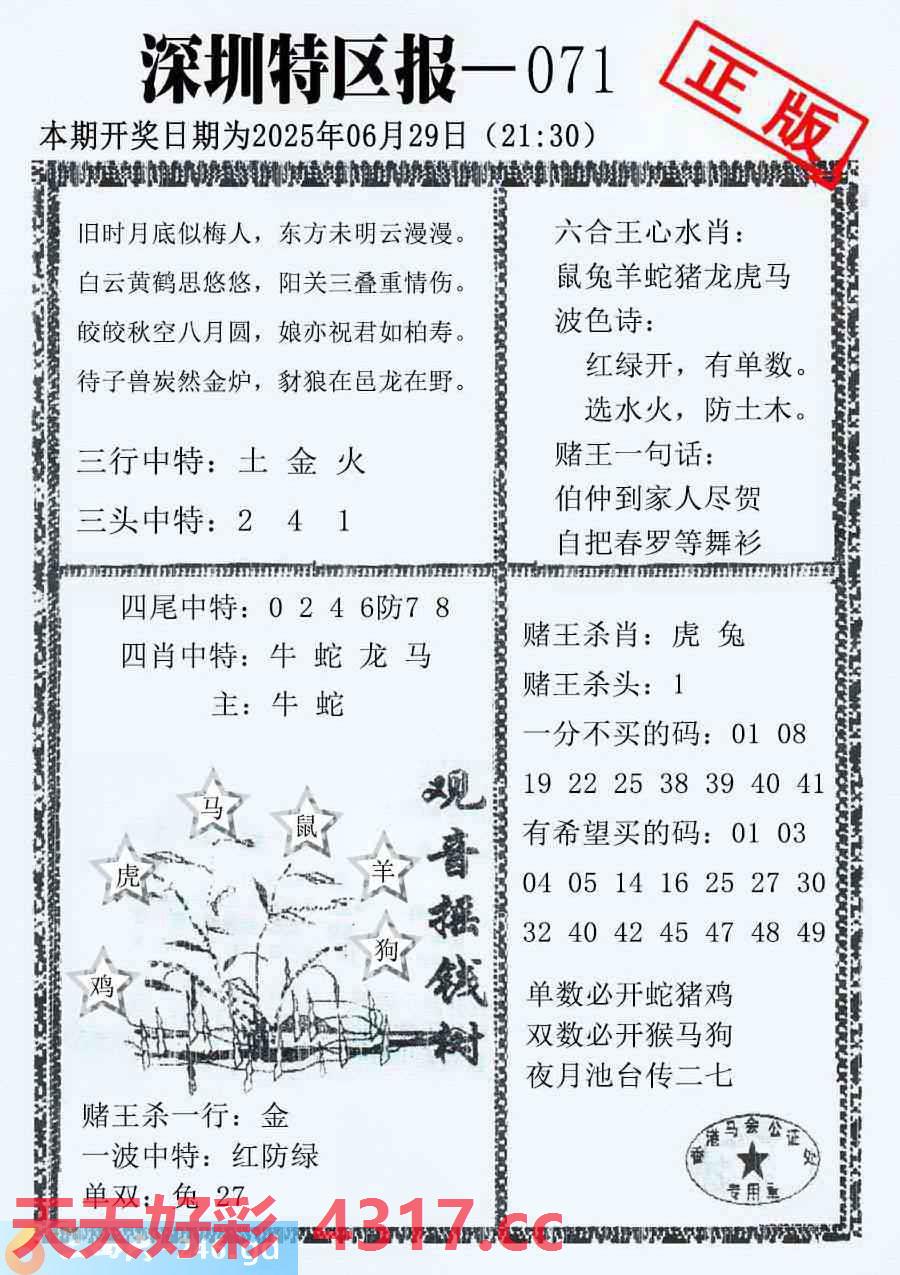 深圳特区报—071
正版
本期开奖日期为2025年06月29日（21:30）
旧时月底似梅人，东方未明云漫漫。
白云黄鹤思悠悠，阳关三叠重情伤。
皎皎秋空八月圆，娘亦祝君如柏寿。
待子兽炭然金炉，豺狼在邑龙在野。
三行中特：土 金 火
三头中特：2 4 1
六合王心水肖：
鼠兔羊蛇猪龙虎马
波色诗：
红绿开，有单数。
选水火，防土木。
赌王一句话：
伯仲到家人尽贺
自把春罗等舞衫
四尾中特：0 2 4 6防7 8
四肖中特：牛 蛇 龙 马
主：牛 蛇
马
鼠
虎
羊
狗
鸡
观音摇钱树
赌王杀一行：金
一波中特：红防绿
单双：兔 27
赌王杀肖：虎 兔
赌王杀头：1
一分不买的码：01 08
19 22 25 38 39 40 41
有希望买的码：01 03
04 05 14 16 25 27 30
32 40 42 45 47 48 49
单数必开蛇猪鸡
双数必开猴马狗
夜月池台传二七
香港马会公证处
专用章
天天好彩 4317.cc